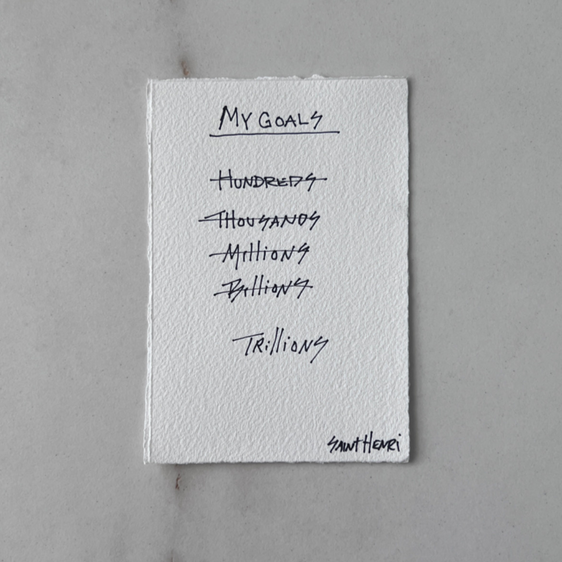 MY GOALS
HUNDREDS
THOUSANDS
Millions
Billions
TRillioNS
SAINT HENRi